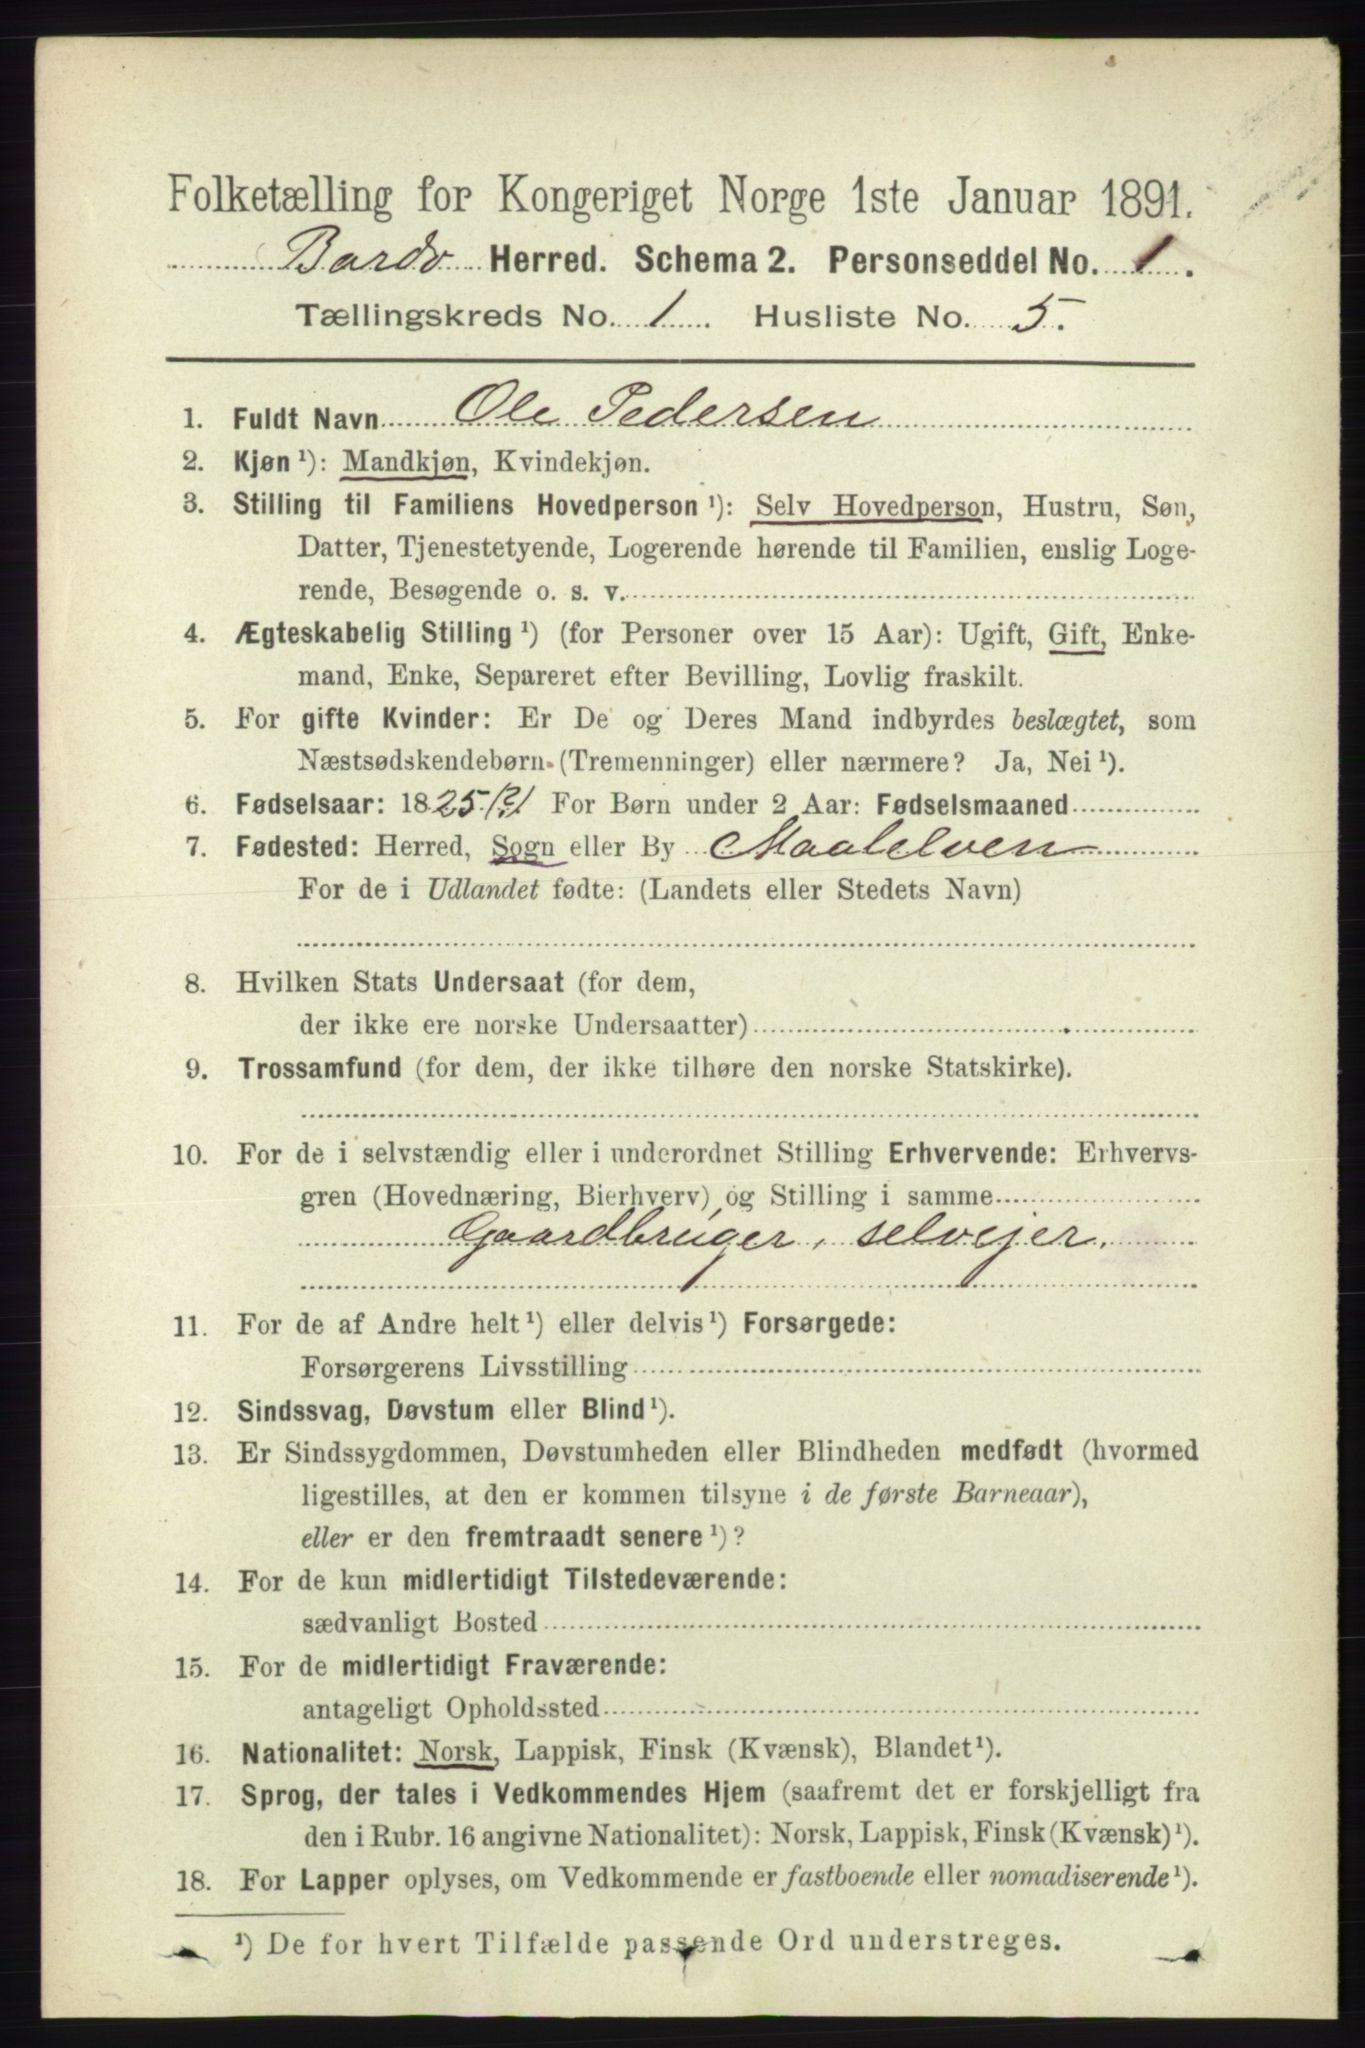 Folketælling for Kongeriget Norge 1ste Januar 1891.
Bardo Herred. Schema 2. Personseddel No. 1.
Tællingskreds No. 1 Husliste No. 5.
1. Fuldt Navn Ole Pedersen
2. Kjøn ¹): Mandkjøn, Kvindekjøn.
3. Stilling til Familiens Hovedperson ¹): Selv Hovedperson, Hustru, Søn,
Datter, Tjenestetyende, Logerende hørende til Familien, enslig Loge-
rende, Besøgende o. s. v.
4. Ægteskabelig Stilling ¹) (for Personer over 15 Aar): Ugift, Gift, Enke-
mand, Enke, Separeret efter Bevilling, Lovlig fraskilt.
5. For gifte Kvinder: Er De og Deres Mand indbyrdes beslægtet, som
Næstsødskendebørn (Tremenninger) eller nærmere? Ja, Nei ¹).
6. Fødselsaar: 1825 For Børn under 2 Aar: Fødselsmaaned
7. Fødested: Herred, Sogn eller By Maalelven
For de i Udlandet fødte: (Landets eller Stedets Navn)
8. Hvilken Stats Undersaat (for dem,
der ikke ere norske Undersaatter)
9. Trossamfund (for dem, der ikke tilhøre den norske Statskirke).
10. For de i selvstændig eller i underordnet Stilling Erhvervende: Erhvervs-
gren (Hovednæring, Bierhverv) og Stilling i samme
Gaardbruger, selvejer.
11. For de af Andre helt ¹) eller delvis ¹) Forsørgede:
Forsørgerens Livsstilling
12. Sindssvag, Døvstum eller Blind ¹).
13. Er Sindssygdommen, Døvstumheden eller Blindheden medfødt (hvormed
ligestilles, at den er kommen tilsyne i de første Barneaar),
eller er den fremtraadt senere ¹)?
14. For de kun midlertidigt Tilstedeværende:
sædvanligt Bosted
15. For de midlertidigt Fraværende:
antageligt Opholdssted
16. Nationalitet: Norsk, Lappisk, Finsk (Kvænsk), Blandet ¹).
17. Sprog, der tales i Vedkommendes Hjem (saafremt det er forskjelligt fra
den i Rubr. 16 angivne Nationalitet): Norsk, Lappisk, Finsk (Kvænsk) ¹).
18. For Lapper oplyses, om Vedkommende er fastboende eller nomadiserende ¹).
¹) De for hvert Tilfælde passende Ord understreges.